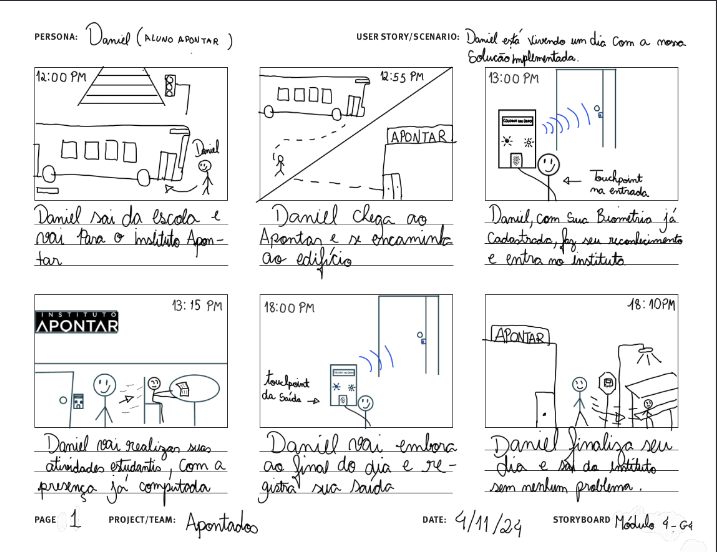 PERSONA: Daniel (ALUNO APONTAR)
USER STORY/SCENARIO: Daniel está vivendo um dia com a nossa
Solução implementada.
12:00 PM
Daniel
Daniel sai da escola e
vai Para o Instituto Apon-
tar
12:55 PM
APONTAR
Daniel chega ao
Apontar e se encaminha
ao edifício
13:00 PM
COLOQUE SEU DEDO
Touchpoint
na entrada
Daniel, com sua Biometria já
Cadastrada, faz seu reconhecimento
e entra no instituto
13:15 PM
INSTITUTO
APONTAR
Daniel vai realizar suas
atividades estudantis, com a
presença já computada
18:00 PM
touchpoint
da Saída
Daniel vai embora
ao final do dia e re-
gistra sua saída
18:10PM
APONTAR
Daniel finaliza seu
dia e sai do instituto
sem nenhum problema.
PAGE 1
PROJECT/TEAM: Apontados
DATE: 4/11/24
STORYBOARD Módulo 4 - G4